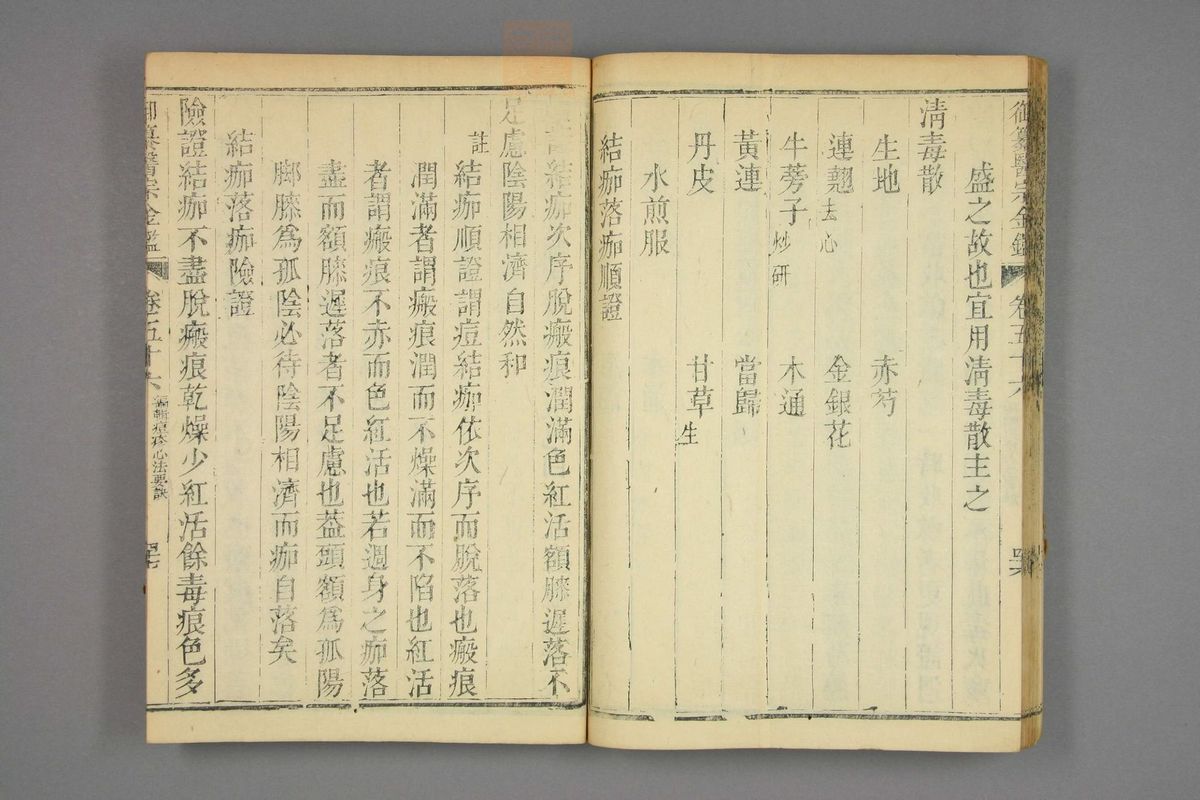 御纂醫宗金鑑 卷五十六 四六
盛之故也宜用清毒散主之
清毒散
生地 赤芍
連翹去心 金銀花
牛蒡子炒研 木通
黃連 當歸
丹皮 甘草生
水煎服
結痂落痂順證
結痂次序脫瘢痕潤滿色紅活額膝遲落不
足慮陰陽相濟自然和
註 結痂順證謂痘結痂依次序而脫落也瘢痕
潤滿者謂瘢痕潤而不燥滿而不陷也紅活
者謂瘢痕不赤而色紅活也若週身之痂落
盡而額膝遲落者不足慮也蓋頭額爲孤陽
脚膝爲孤陰必待陰陽相濟而痂自落矣
結痂落痂險證
險證結痂不盡脫瘢痕乾燥少紅活餘毒痕色多
御纂醫宗金鑑 卷五十六 編輯痘疹心法要訣 四七